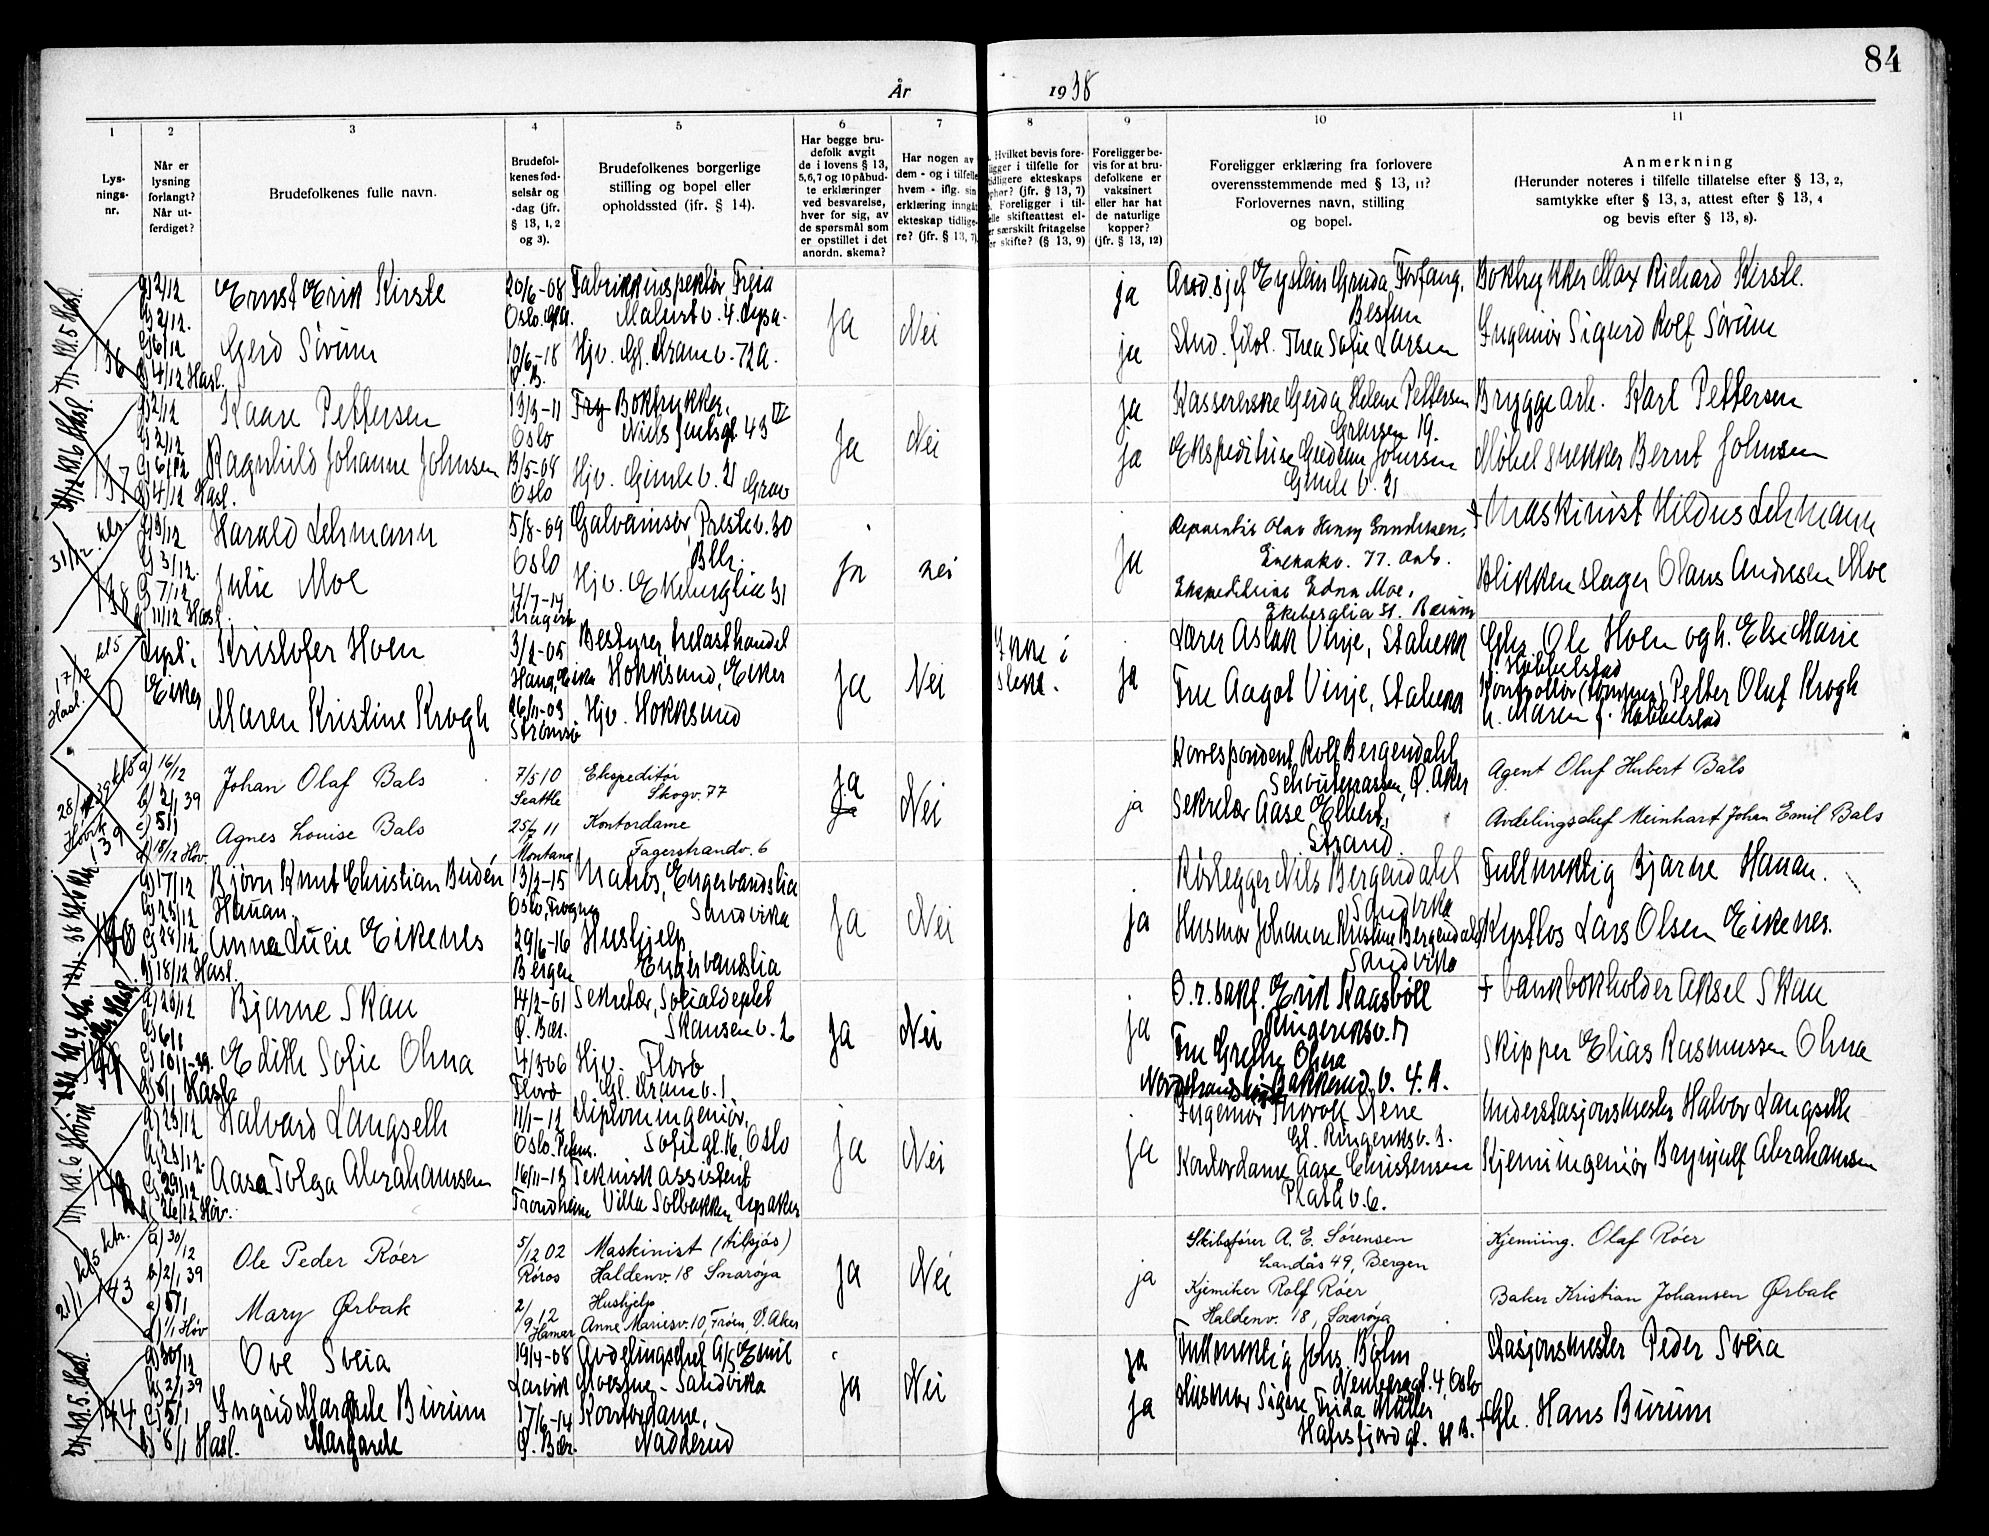 84
År 1938
1
Lys-
nings-
nr.
2
Når er
lysning
forlangt?
Når ut-
ferdiget?
3
Brudefolkenes fulle navn.
4
Brudefol-
kenes fød-
selsår og
-dag (jfr.
§ 13, 1, 2
og 3).
5
Brudefolkenes borgerlige
stilling og bopel eller
opholdssted (ifr. § 14).
6
Har begge bru-
defolk avgit
de i lovens § 13,
5, 6, 7 og 10 påbud-
te erklæringer
ved besvarelse,
hver for sig, av
de spørsmål som
er opstillet i det
anordn. skema?
7
Har nogen av
dem - og i tilfelle
hvem - iflg. sin
erklæring inngåt
ekteskap tidlige-
re? (jfr. § 13, 7)
8
Hvilket bevis fore-
ligger i tilfelle for
tidligere ekteskaps
ophør? (jfr. § 13, 7)
Foreligger i til-
felle skifteattest el-
er særskilt fritagelse
or skifte? (§ 13, 9)
9
Foreligger be-
vis for at bru-
defolkene er
vaksinert
eller har hat
de naturlige
kopper?
(jfr. § 13, 12)
10
Foreligger erklæring fra forlovere
overensstemmende med § 13, 11?
Forlovernes navn, stilling
og bopel.
11
Anmerkning
(Herunder noteres i tilfelle tillatelse efter § 13, 2,
samtykke efter § 13, 3, attest efter § 13, 4
og bevis efter § 13, 8).
136
a) 2/12
b) 2/12.
c) 6/12
d) 4/12 Hasl.
Ernst Erik Kirste
Gerd Sørum
20/6-08
Oslo.
10/6-18
Ø. B.
Fabrikkinspektør, Freia
Hjv. Gl. Dramv. 72a.
Ja
Nei
ja
ja
Eystein Grenda Forfang,
Bestum
Stud. filol. Thea Sofie Larsen
Boktrykker Max Richard Kirste.
Ingeniør Sigurd Rolf Sørum
137
a) 2/12
b) 2/12
c) 6/12
d) 4/12 Hasl.
Kaare Pettersen
Ragnhild Johanne Johnsen
13/3-11
Oslo
13/5-08
Oslo
Boktrykker,
Niels Juelsgt 43 IV
Hjv. Gimle v. 21
Ja
Nei
ja
ja
Kassererske Gerda Helene Pettersen
Grensen 19.
Ekspeditrise Gudrun Johnsen
Gimle v. 21
Bryggearb. Karl Pettersen
Møbelsnekker Bernt Johnsen
138
a) 3/12
b) 3/12.
c) 7/12
d) 11/12 Hasl.
Harald Lehmann
Julie Moe
5/8-09
Oslo
4/7-14
Kragerø
Galvanisør, Prestev. 30
Blk.
Hjv. Ekeberglia 31
Ja
nei
Ja
Reparatør Olav Henry Gundersen,
77. Oslo.
Ekspeditrise Edna Moe,
Ekeberglia 31. Bærum
+ Maskinist Hildus Lehmann
Blikkenslager Olaus Andresen Moe
17/12 kl 5
Hasl.
0
Lyst i
Eiker
Kristofer Hoen
Maren Kristine Krogh
3/2-05
Haug, Eiker
26/11-03
Strømsø
Bestyrer, trelasthandel
Hokksund, Eiker
Hjv. Hokksund
Ja
Nei
Ikke i
slekt.
ja
Lærer Aslak Vinje, Stabekk
Fru Aagot Vinje, Stabekk
Gbr. Ole Hoen og h. Else Marie
f. Hobbelstad
Kontrollør (tømmer) Petter Oluf Krogh
h. Maren f. Hobbelstad
139
a) 16/12
b) 2/1 39
c) 5/1
d) 18/12 Høv.
Johan Olaf Bals
Agnes Louise Bals
7/5 10
Seattle
25/7 11
Montana
Ekspeditør
Skogv. 77
Kontordame
Fagerstrandv. 6
Ja
Nei
ja
Korrespondent Rolf Bergendahl,
Ø. Aker
Sekretær Aase Elbert,
Strand.
Agent Oluf Hubert Bals
Avdelingschef Meinhart Johan Emil Bals
140
a) 17/12
b) 23/12
c) 28/12
d) 18/12 Hasl.
Bjørn Knut Christian Budén
Hauan.
Anna Lucie Eikenes
13/2-15
Oslo, Frogner
29/6-16
Bergen
Matros, Engervandslia
Sandvika
Hushjelp
Engervandslia
Ja
Nei
ja
Rørlegger Nils Bergendahl
Sandvika
Husmor Johanne Kristine Bergendahl
Sandvika
Fullmektig Bjarne Hauan.
Kystlos Lars Olsen Eikenes.
a) 23/12
b) 6/1
c) 10/1-39.
d) 8/1 Hasl.
Bjarne Skau
Edith Sofie Ohna
14/2-01
Ø. Bær.
4/3 06
Florø
Sekretær, Socialdeptet
Skansen v. 2
Hjv. Florø
Gl. Dram v. 1
Ja
Nei
ja
O.r.sakf. Erik Kaasbøll
Ringeriksv. 17
Fru Grethe Ohna
Bakkerud v. 4. A.
+ bankbokholder Aksel Skau
Skipper Elias Rasmussen Ohna
142
a) 23/12
b) 23/12.
c) 29/12
d) 26/12 Høv.
Halvard Langseth
Aase Tolga Abrahamsen
11/1-12
Oslo. Petrus.
16/11-13
Trondheim
Diplomingeniør,
Sofiegt. 16, Oslo
Teknisk assistent
Villa Solbakken Lysaker
Ja
Nei
ja
Ingeniør Thorolf Stene
Gl. Ringeriksv. 3.
Kontordame Aase Christensen
Platåv. 6.
Understasjonsmester Halvor Langseth
Kjemiingeniør Brynjulf Abrahamsen
21/1 kl 5 ktr.
143
a) 30/12
b) 2/1 39
c) 5/1
d) 1/1 Høv
Ole Peder Røer
Mary Ørbak
5/12 02
Røros
2/9 12
Hamar
Maskinist (tilsjøs)
Haldenv. 18 Snarøya
Hushjelp
Anne Mariesv. 10, Frøen, V. Aker
Ja
Nei
ja
Skibsfører A. E. Sørensen
Landås 49, Bergen
Kjemiker Rolf Røer
Haldenv. 18, Snarøya
Kjeming. Olaf Røer
Baker Kristian Johansen Ørbak
144
a) 30/12
b) 2/1 39
c) 5/1
d) 8/1 Hasl.
Ove Sveia
Ingrid Margrete Burum
Margarete
19/4-08
Larvik
17/6-14
Ø. Bær.
Avdelingschef A/S Emil
Moestue - Sandvika
Kontordame,
Nadderud
ja
Nei
ja
ja
Fullmektig Johs. Bøhm
4, Oslo
Husmor Signe Frida Müller
Hafrsfjordgt. 11 B.
Stasjonsmester Peder Sveia
+ Gbr. Hans Burum